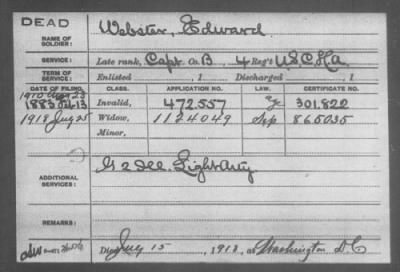 DEAD
NAME OF SOLDIER: Webster, Edward
SERVICE: Late rank, Capt. Co. B, 4 Reg't U.S.C.H.A.
TERM OF SERVICE: Enlisted , 1 Discharged , 1
DATE OF FILING. CLASS. APPLICATION NO. LAW. CERTIFICATE NO.
1910 23
1883 13 Invalid, 472.557 301.822
1918 July 25 Widow, 1124049 865035
Minor,
ADDITIONAL SERVICES: G 2 Ill. Light Arty.
REMARKS:
Died July 15, 1918, at Washington D.C.